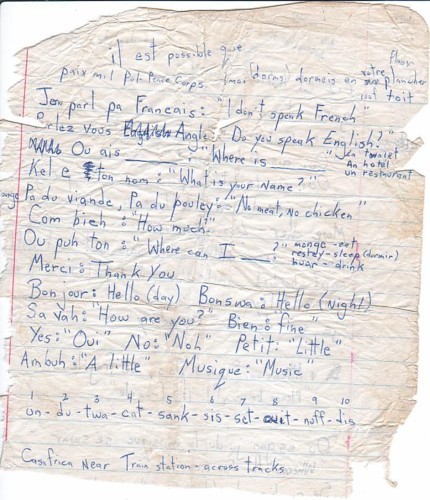 il est possible que
paix mil Pol. Peace Corps. (moi dorms) dormeis en votre plancher
floor
toit
Jen parl pa Francais: "I don't speak French"
Parlez vous Angle: Do you speak English?"
Ou ais ____: "Where is ____" a toilet
An hotel
un restaurant
Kel e ton nom: "What is your Name?"
Pa du viande, Pa du pouley: "No meat, No chicken"
Com bieh: "How much?"
Ou puh ton: "Where can I ____?" mange - eat
restey - sleep (dormir)
buar - drink
Merci: Thank You
Bonjour: Hello (day) Bonswa: Hello (Night)
Sa Vah: "How are you?" Bien: fine"
Yes: "Oui" No: "Noh" Petit: "Little"
Ambuh: "A little" Musique: "Music"
1 2 3 4 5 6 7 8 9 10
un - du - twa - cat - sank - sis - set - uit - nuff - dis
Casafrica Near Train station - across tracks